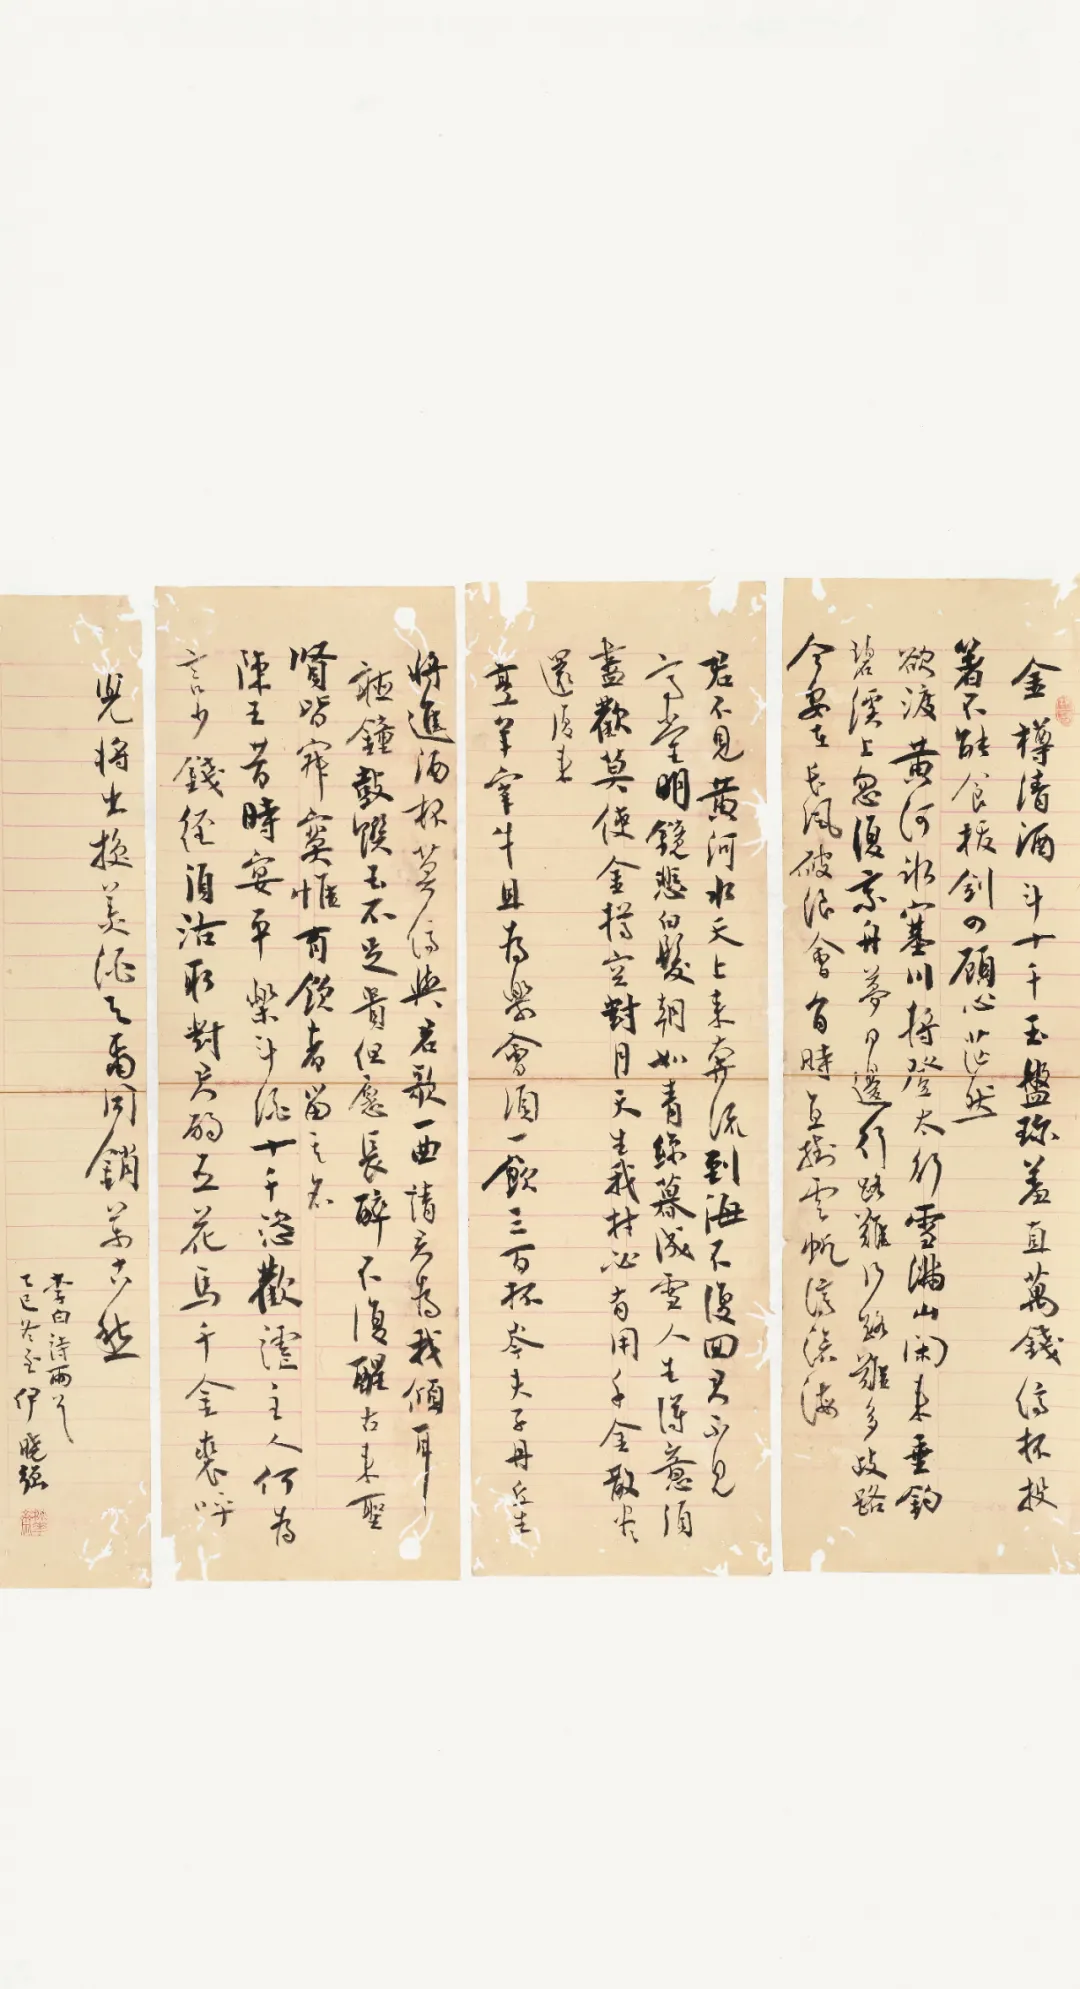 金樽清酒斗十千玉盤珍羞直萬錢停杯投
箸不能食拔劍四顧心茫然
欲渡黄河冰塞川將登太行雪滿山閑来垂釣
碧溪上忽復乘舟夢日邊行路難行路難多歧路
今安在長風破浪會有時直掛雲帆濟滄海
君不見黄河水天上来奔流到海不復回君不見
高堂明鏡悲白髮朝如青絲暮成雪人生得意須
盡歡莫使金樽空對月天生我材必有用千金散盡
還復来
烹羊宰牛且為樂會須一飲三百杯岑夫子丹丘生
將進酒杯莫停與君歌一曲請君為我傾耳
聽鐘鼓饌玉不足貴但願長醉不復醒古来聖
賢皆寂寞惟有飲者留其名
陳王昔時宴平樂斗酒十千恣歡謔主人何為
言少錢徑須沽取對君酌五花馬千金裘呼
兒將出換美酒與爾同銷萬古愁
李白詩兩首
乙巳冬至伊曉强